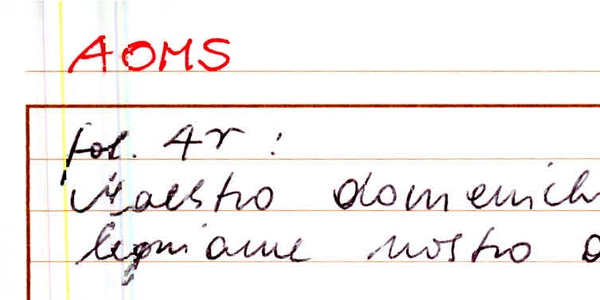 AOMS
fol. 4r:
Maestro domenich
legniame nostro